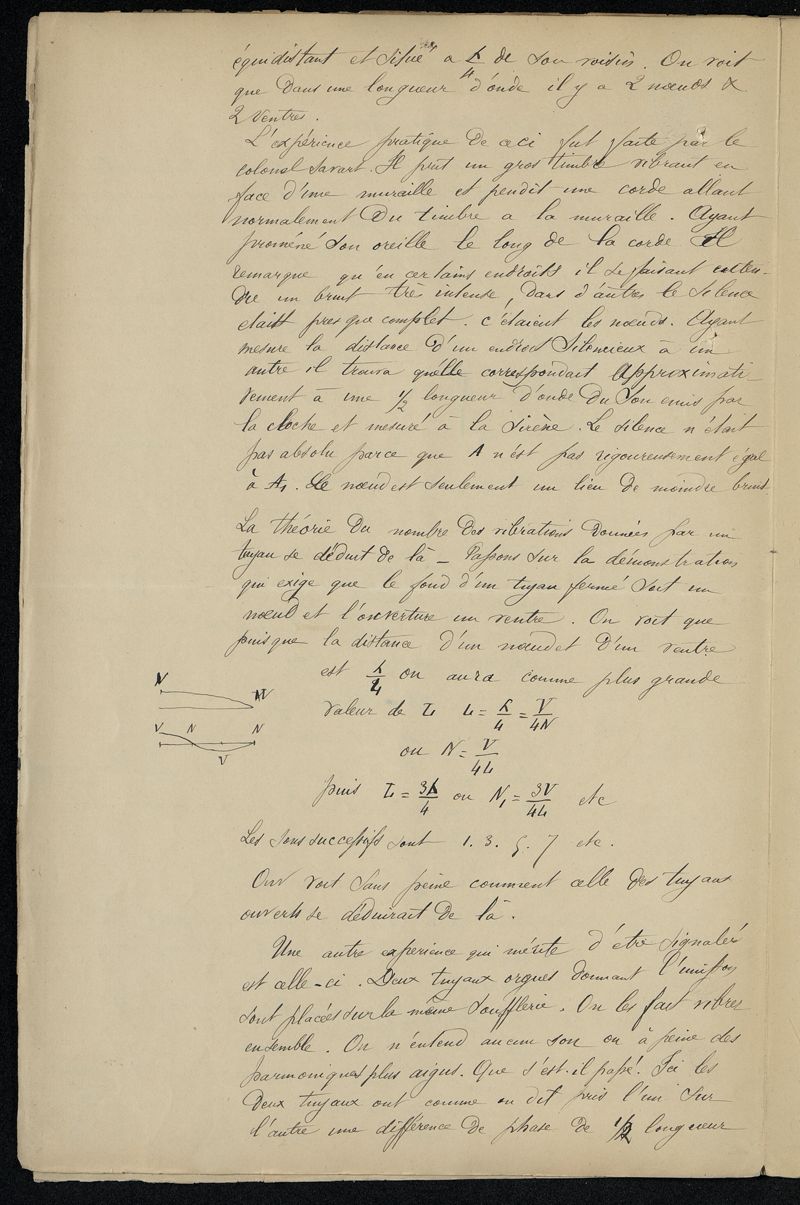 équidistant et situé a λ/4 de son voisin. On voit
que dans une longueur d'onde il y a 2 nœuds &
2 ventres.
L'expérience pratique de ceci fut faite par le
colonel Savart. Il prit un gros timbre vibrant en
face d'une muraille et pendit une corde allant
normalement du timbre a la muraille. Ayant
promené son oreille le long de la corde Il
remarque qu'en certains endroits il se faisant enten-
dre un bruit très intense, dans d'autres le silence
etait presque complet. c'étaient les nœuds. Ayant
mesure la distance d'un endroit silencieux à un
autre il trouva qu'elle correspondait approximati-
vement à une 1/2 longueur d'onde du son emis par
la cloche et mesuré à la sirène. Le silence n'était
pas absolu parce que A n'est pas rigoureusement égal
à A1. Le nœud est seulement un lieu de moindre bruit
La théorie du nombre des vibrations données par un
tuyau se déduit de là – Passons sur la démonstration
qui exige que le fond d'un tuyau fermé soit un
nœud et l'ouverture un ventre. On voit que
puisque la distance d'un nœud et d'un ventre
est λ/4 on aura comme plus grande
valeur de L L = λ/4 = V/4N
ou N = V/4L
puis L = 3λ/4 ou N1 = 3V/4L etc
V N
V N N
V
Les sons successifs sont 1. 3. 5. 7 etc.
On voit sans peine comment celle des tuyaux
ouverts se déduirait de là.
Une autre experience qui mérite d'être signalée
est celle-ci. Deux tuyaux orgues donnant l'unisson
sont placées sur la même soufflerie. On les fait vibrer
ensemble. On n'entend aucun son ou à peine des
harmoniques plus aigus. Que s'est-il passé. Ici les
deux tuyaux ont comme on dit pris l'un sur
l'autre une différence de phase de 1/2 longueur